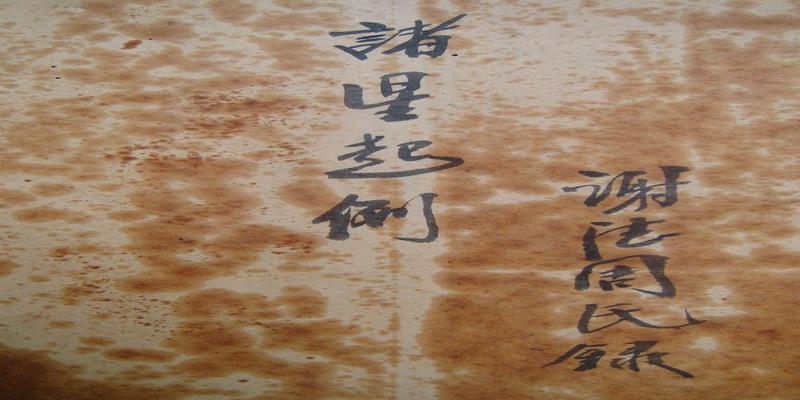 謝法周氏錄
諸星起例